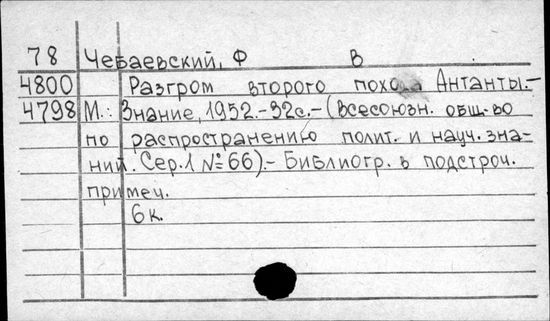 78 Чебаевский, Ф В
4800 Разгром второго похода Антанты.-
4798 М.: Знание, 1952.-32с.-(Всесоюзн. общ-во
по распространению полит. и науч. зна-
ний. Сер.1 №66).- Библиогр. в подстроч.
примеч.
6к.